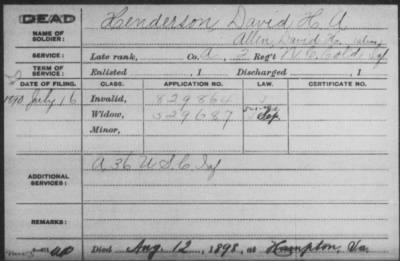 DEAD
NAME OF SOLDIER: Henderson, David H. A
Allen, David H. (alias)
SERVICE: Late rank, Co. A, 2 Reg't N.C. Cold. Inf
TERM OF SERVICE: Enlisted , 1 Discharged , 1
DATE OF FILING. CLASS. APPLICATION NO. LAW. CERTIFICATE NO.
1890 July 16 Invalid, 829864
Widow, 529687
Minor,
ADDITIONAL SERVICES: A 36 U.S.C Inf
REMARKS:
Died Aug. 12, 1898, at Hampton, Va.